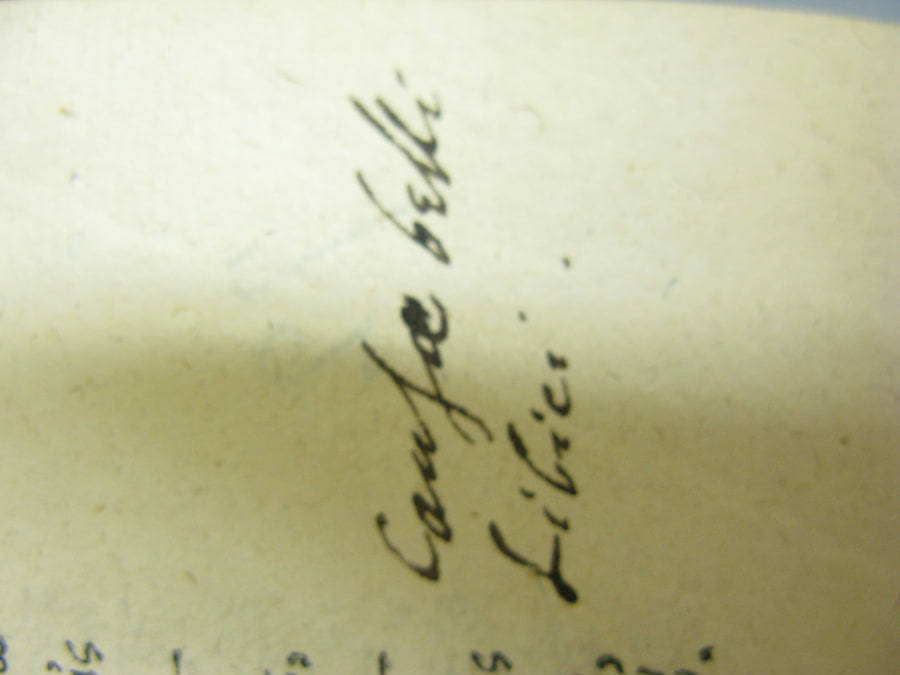 Causæ belli
Libici.